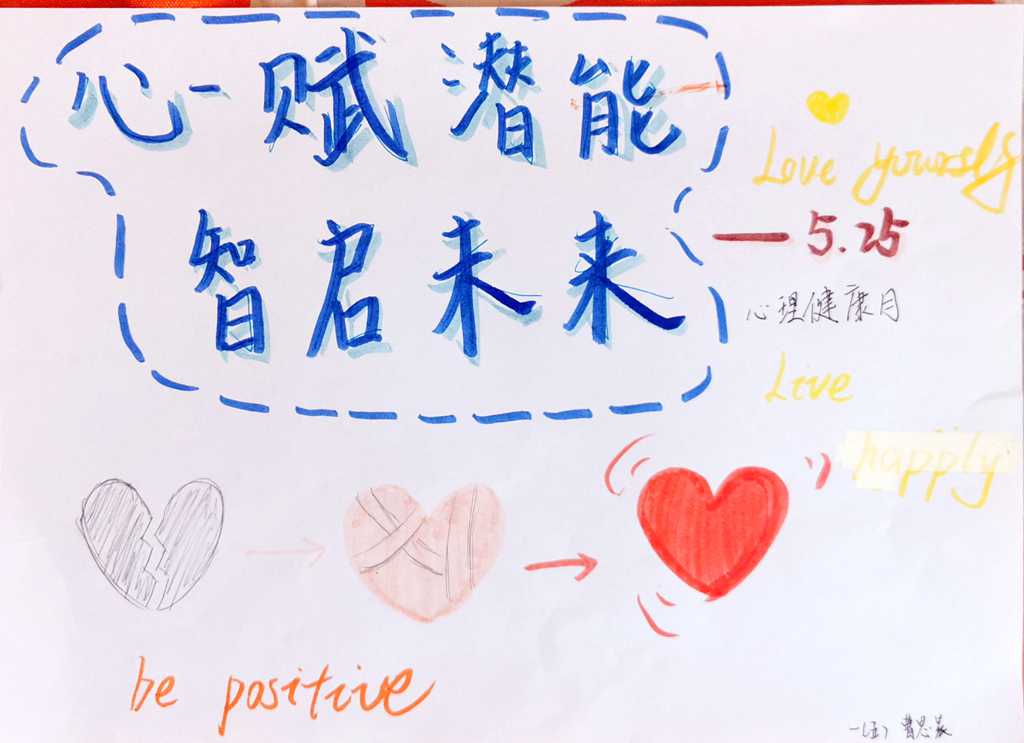 心-赋潜能
智启未来
Love yourslf
—5.25
心理健康月
Live
happly
be positive
一(五) 曹思